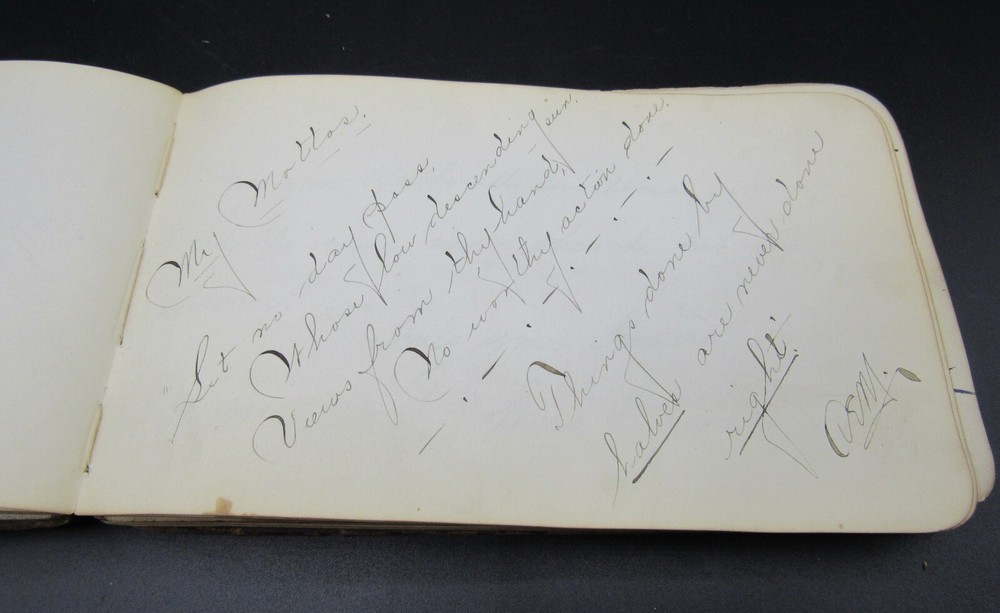 My Mottos.
"Let no day pass,
Whose low descending sun.
Views from thy hand,
No worthy action done.
Things done by
halves are never done
right.